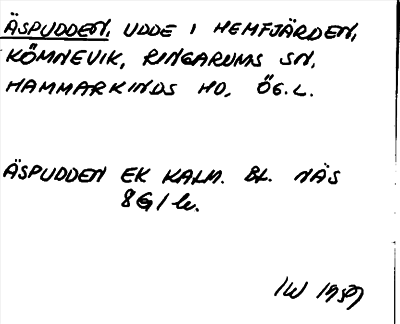 ÄSPUDDEN, UDDE I HEMFJÄRDEN,
KÖMNEVIK, RINGARUMS SN,
HAMMARKINDS HD, ÖG.L.
ÄSPUDDEN EK KALM. BL. NÄS
8G1
IW 1959